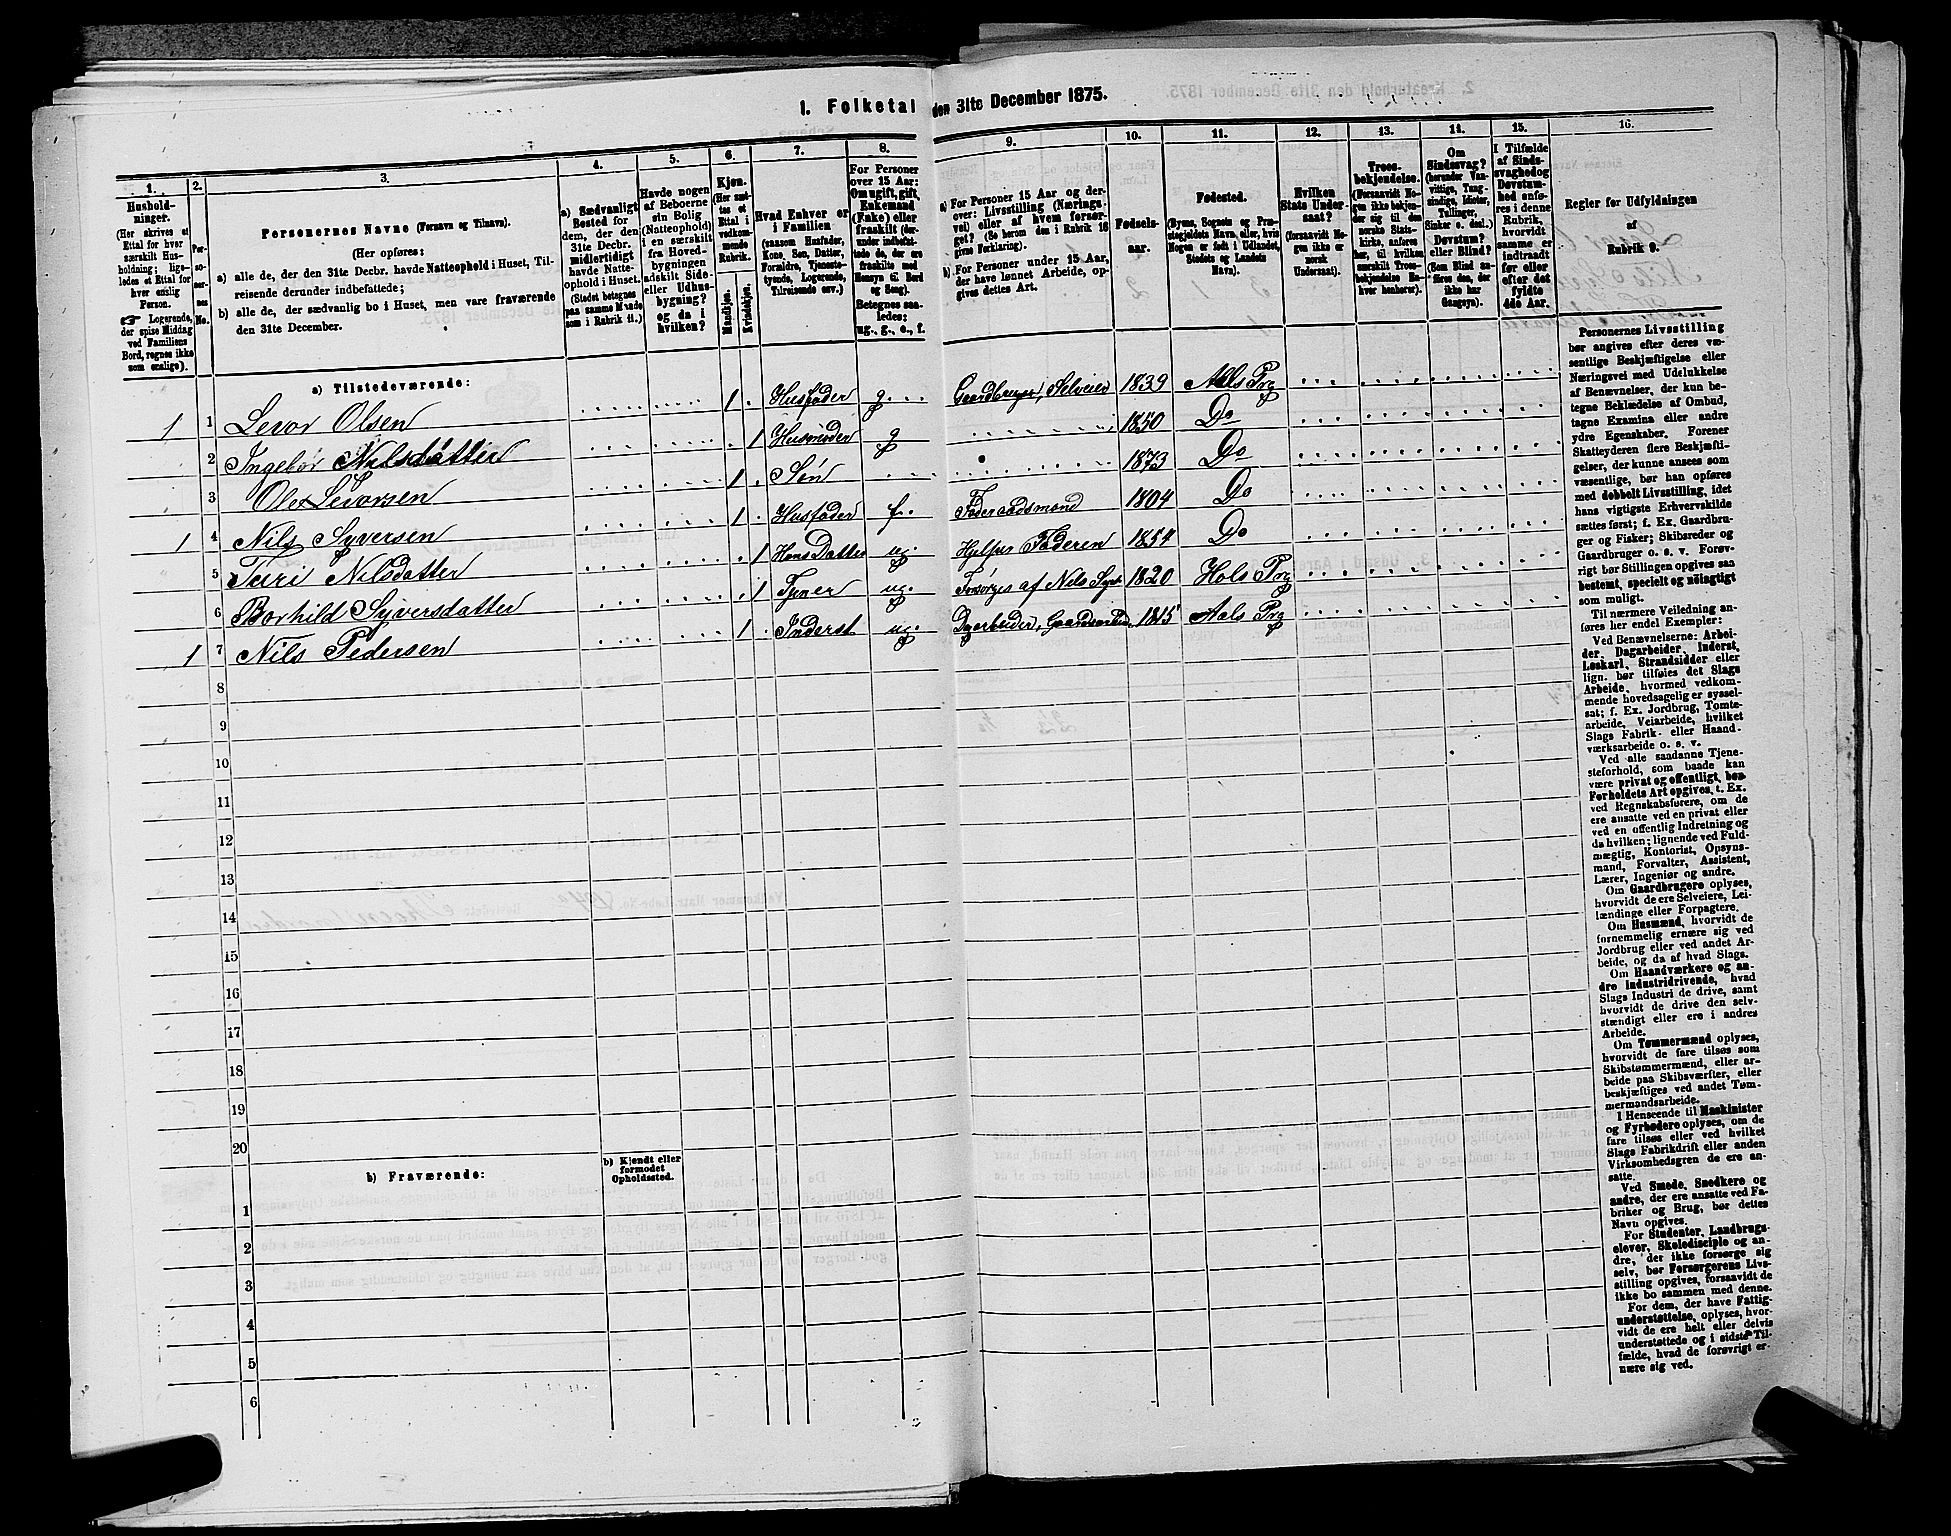 1. Folketal den 31te December 1875.
1. 2. 3. 4. 5. 6. 7. 8. 9. 10. 11. 12. 13. 14. 15. 16.
Hushold-
ninger.
(Her skrives et
Ettal for hver
særskilt Hus-
holdning; lige-
ledes et Ettal for
hver enslig
Person.
☞ Logerende,
der spise Middag
ved Familiens
Bord, regnes ikke
som enslige).
Per-
so-
ner-
nes
No.
Personernes Navne (Fornavn og Tilnavn).
(Her opføres:
a) alle de, der den 31te Decbr. havde Natteophold i Huset, Til-
reisende derunder indbefattede;
b) alle de, der sædvanlig bo i Huset, men vare fraværende
den 31te December.
a) Sædvanligt
Bosted for
dem, der den
31te Decbr.
midlertidigt
havde Natte-
ophold i Huset.
(Stedet betegnes
paa samme Maade
som i Rubrik 11.)
Havde nogen
af Beboerne
sin Bolig
(Natteophold)
i en særskilt
fra Hoved-
bygningen
adskilt Side-
eller Udhus-
bygning?
og da i
hvilken?
Kjøn.
(Her sæt-
tes et
Ettal i
vedkom-
mende
Rubrik.
Mandkjøn.
Kvindekjøn.
Hvad Enhver er
i Familien
(saasom Husfader,
Kone, Søn, Datter,
Forældre, Tjeneste-
tyende, Logerende,
Tilreisende osv.)
For Personer
over 15 Aar:
Om ugift, gift,
Enkemand
(Enke) eller
fraskilt (der-
under indbefat-
tede de, der ere
fraskilte med
Hensyn til Bord
og Seng).
Betegnes saa-
ledes:
ug., g., e., f.
a) For Personer 15 Aar og der-
over: Livsstilling (Nærings-
vei) eller af hvem forsør-
get? (Se herom den i Rubrik 16
givne Forklaring).
b) For Personer under 15 Aar,
der have lønnet Arbeide, op-
gives dettes Art.
Fødsels-
aar.
Fødested.
(Byens, Sognets og Præ-
stegjeldets Navn, eller, hvis
Nogen er født i Udlandet,
Stedets og Landets
Navn).
Hvilken
Stats Under-
saat?
(forsaavidt No-
gen ikke er
norsk
Undersaat).
Troes-
bekjendelse.
(Forsaavidt No-
gen ikke bekjen-
der sig til den
norske Stats-
kirke, anføres
her, til hvilken
særskilt Troes-
bekjendelse En-
hver henhører).
Om
Sindssvag?
(herunder Van-
vittige, Tung-
sindige, Idioter,
Tullinger,
Sinker o. desl.)
Døvstum?
eller Blind?
(Som Blind an-
føres den, der
ikke har
Gangsyn).
I Tilfælde
af Sinds-
svaghed og
Døvstum-
hed anfø-
res i denne
Rubrik,
hvorvidt
samme er
indtraadt
før eller
efter det
fyldte
4de Aar.
Regler for Udfyldningen
af
Rubrik 9.
a) Tilstedeværende:
1 1 Levor Olsen 1 Husfader g. Gaardbruger, Selveier 1839 Aals Prg
2 Ingebør Nilsdatter 1 Husmoder g 1850 Do
3 Ole Levorsen 1 Søn 1873 Do
1 4 Nils Syversen 1 Husfader f. Føderaadsmand 1804 Do
5 Turi Nilsdatter 1 Hans Datter ug. Hjelper Faderen 1854 Do
6 Borhild Syversdatter 1 Tjener ug. Forsørges af Nils Syv. 1820 Hols Prg
1 7 Nils Pedersen 1 Inderst ug. Dagarbeider, 1815 Aals Prg
8
9
10
11
12
13
14
15
16
17
18
19
20
b) Fraværende:
b) Kjendt eller
formodet
Opholdssted.
1
2
3
4
5
6
Personernes Livsstilling
bør angives efter deres væ-
sentlige Beskjæftigelse eller
Næringsvei med Udelukkelse
af Benævnelser, der kun be-
tegne Beklædelse af Ombud,
tagne Examina eller andre
ydre Egenskaber. Forener
Skatteyderen flere Beskjæfti-
gelser, der kunne ansees som
væsentlige, bør han opføres
med dobbelt Livsstilling, idet
hans vigtigste Erhvervskilde
sættes først; f. Ex. Gaardbru-
ger og Fisker; Skibsreder og
Gaardbruger o. s. v. Forøv-
rigt bør Stillingen opgives saa
bestemt, specielt og nøiagtigt
som muligt.
Til nærmere Veiledning an-
føres her endel Exempler:
Ved Benævnelserne: Arbei-
der, Dagarbeider, Inderst,
Løskarl, Strandsidder eller
lign. bør tilføies det Slags
Arbeide, hvormed vedkom-
mende hovedsagelig er syssel-
sat; f. Ex. Jordbrug, Tomte-
arbeide, Veiarbeide, hvilket
Slags Fabrik- eller Haand-
værksarbeide o. s. v.
Ved alle saadanne Tjene-
steforhold, som baade kan
være privat og offentligt, bør
Forholdets Art opgives, t. Ex.
ved Regnskabsførere, om de
ere ansatte ved en privat eller
ved en offentlig Indretning og
da hvilken; lignende ved Fuld-
mægtig, Kontorist, Opsyns-
mand, Forvalter, Assistent,
Lærer, Ingeniør og andre.
Om Gaardbrugere oplyses,
hvorvidt de ere Selveiere, Lei-
lændinge eller Forpagtere.
Om Husmænd, hvorvidt de
fornemmelig ernære sig ved
Jordbrug eller ved andet Ar-
beide, og da af hvad Slags.
Om Haandværkere og an-
dre Industridrivende, hvad
Slags Industri de drive, samt
hvorvidt de drive den selv-
stændigt eller ere i andres
Arbeide.
Om Tømmermænd oplyses,
hvorvidt de fare tilsøs som
Skibstømmermænd, eller ar-
beide paa Skibsværfter, eller
beskjæftiges ved andet Tøm-
mermandsarbeide.
I Henseende til Maskinister
og Fyrbødere oplyses, om de
fare tilsøs eller ved hvilket
Slags Fabrikdrift eller anden
Virksomhedsgren de ere an-
satte.
Ved Smede, Snedkere og
andre, der ere ansatte ved Fa-
briker og Brug, bør dettes
Navn opgives.
For Studenter, Landbrugs-
elever, Skoledisciple og an-
dre, der ikke forsørge sig
selv, bør Forsørgerens Livs-
stilling opgives, forsaavidt de
ikke bo sammen med denne.
For dem, der have Fattig-
understøttelse, oplyses, hvor-
vidt de ere helt eller delvis
understøttede og i sidste Til-
fælde, hvad de forøvrigt er-
nære sig ved.